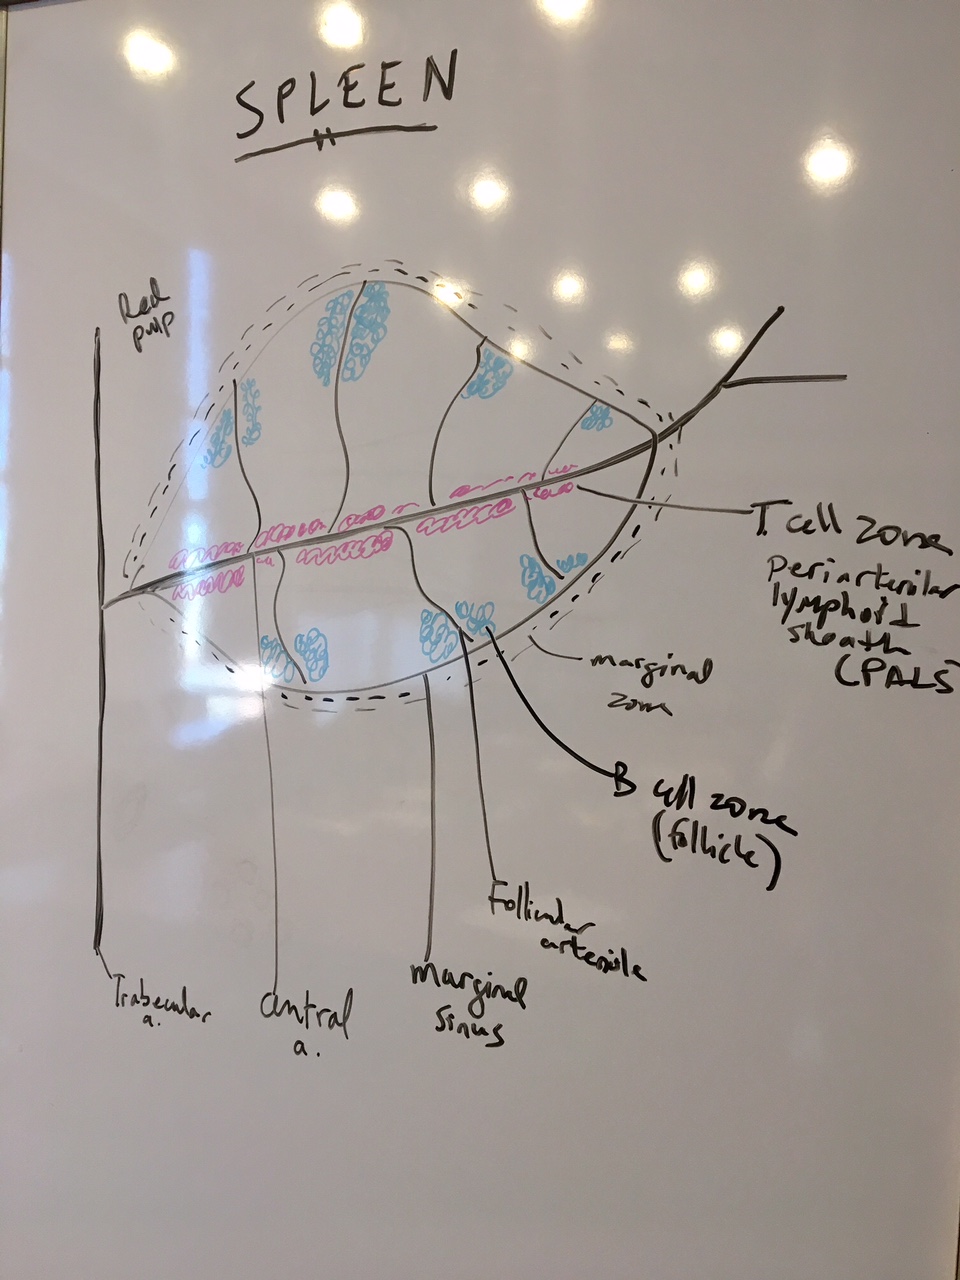 SPLEEN
Red
pulp
T cell zone
periarteriolar
lymphoid
sheath
(PALS)
marginal
zone
B cell zone
(follicle)
Follicular
arteriole
marginal
sinus
central
a.
Trabecular
a.